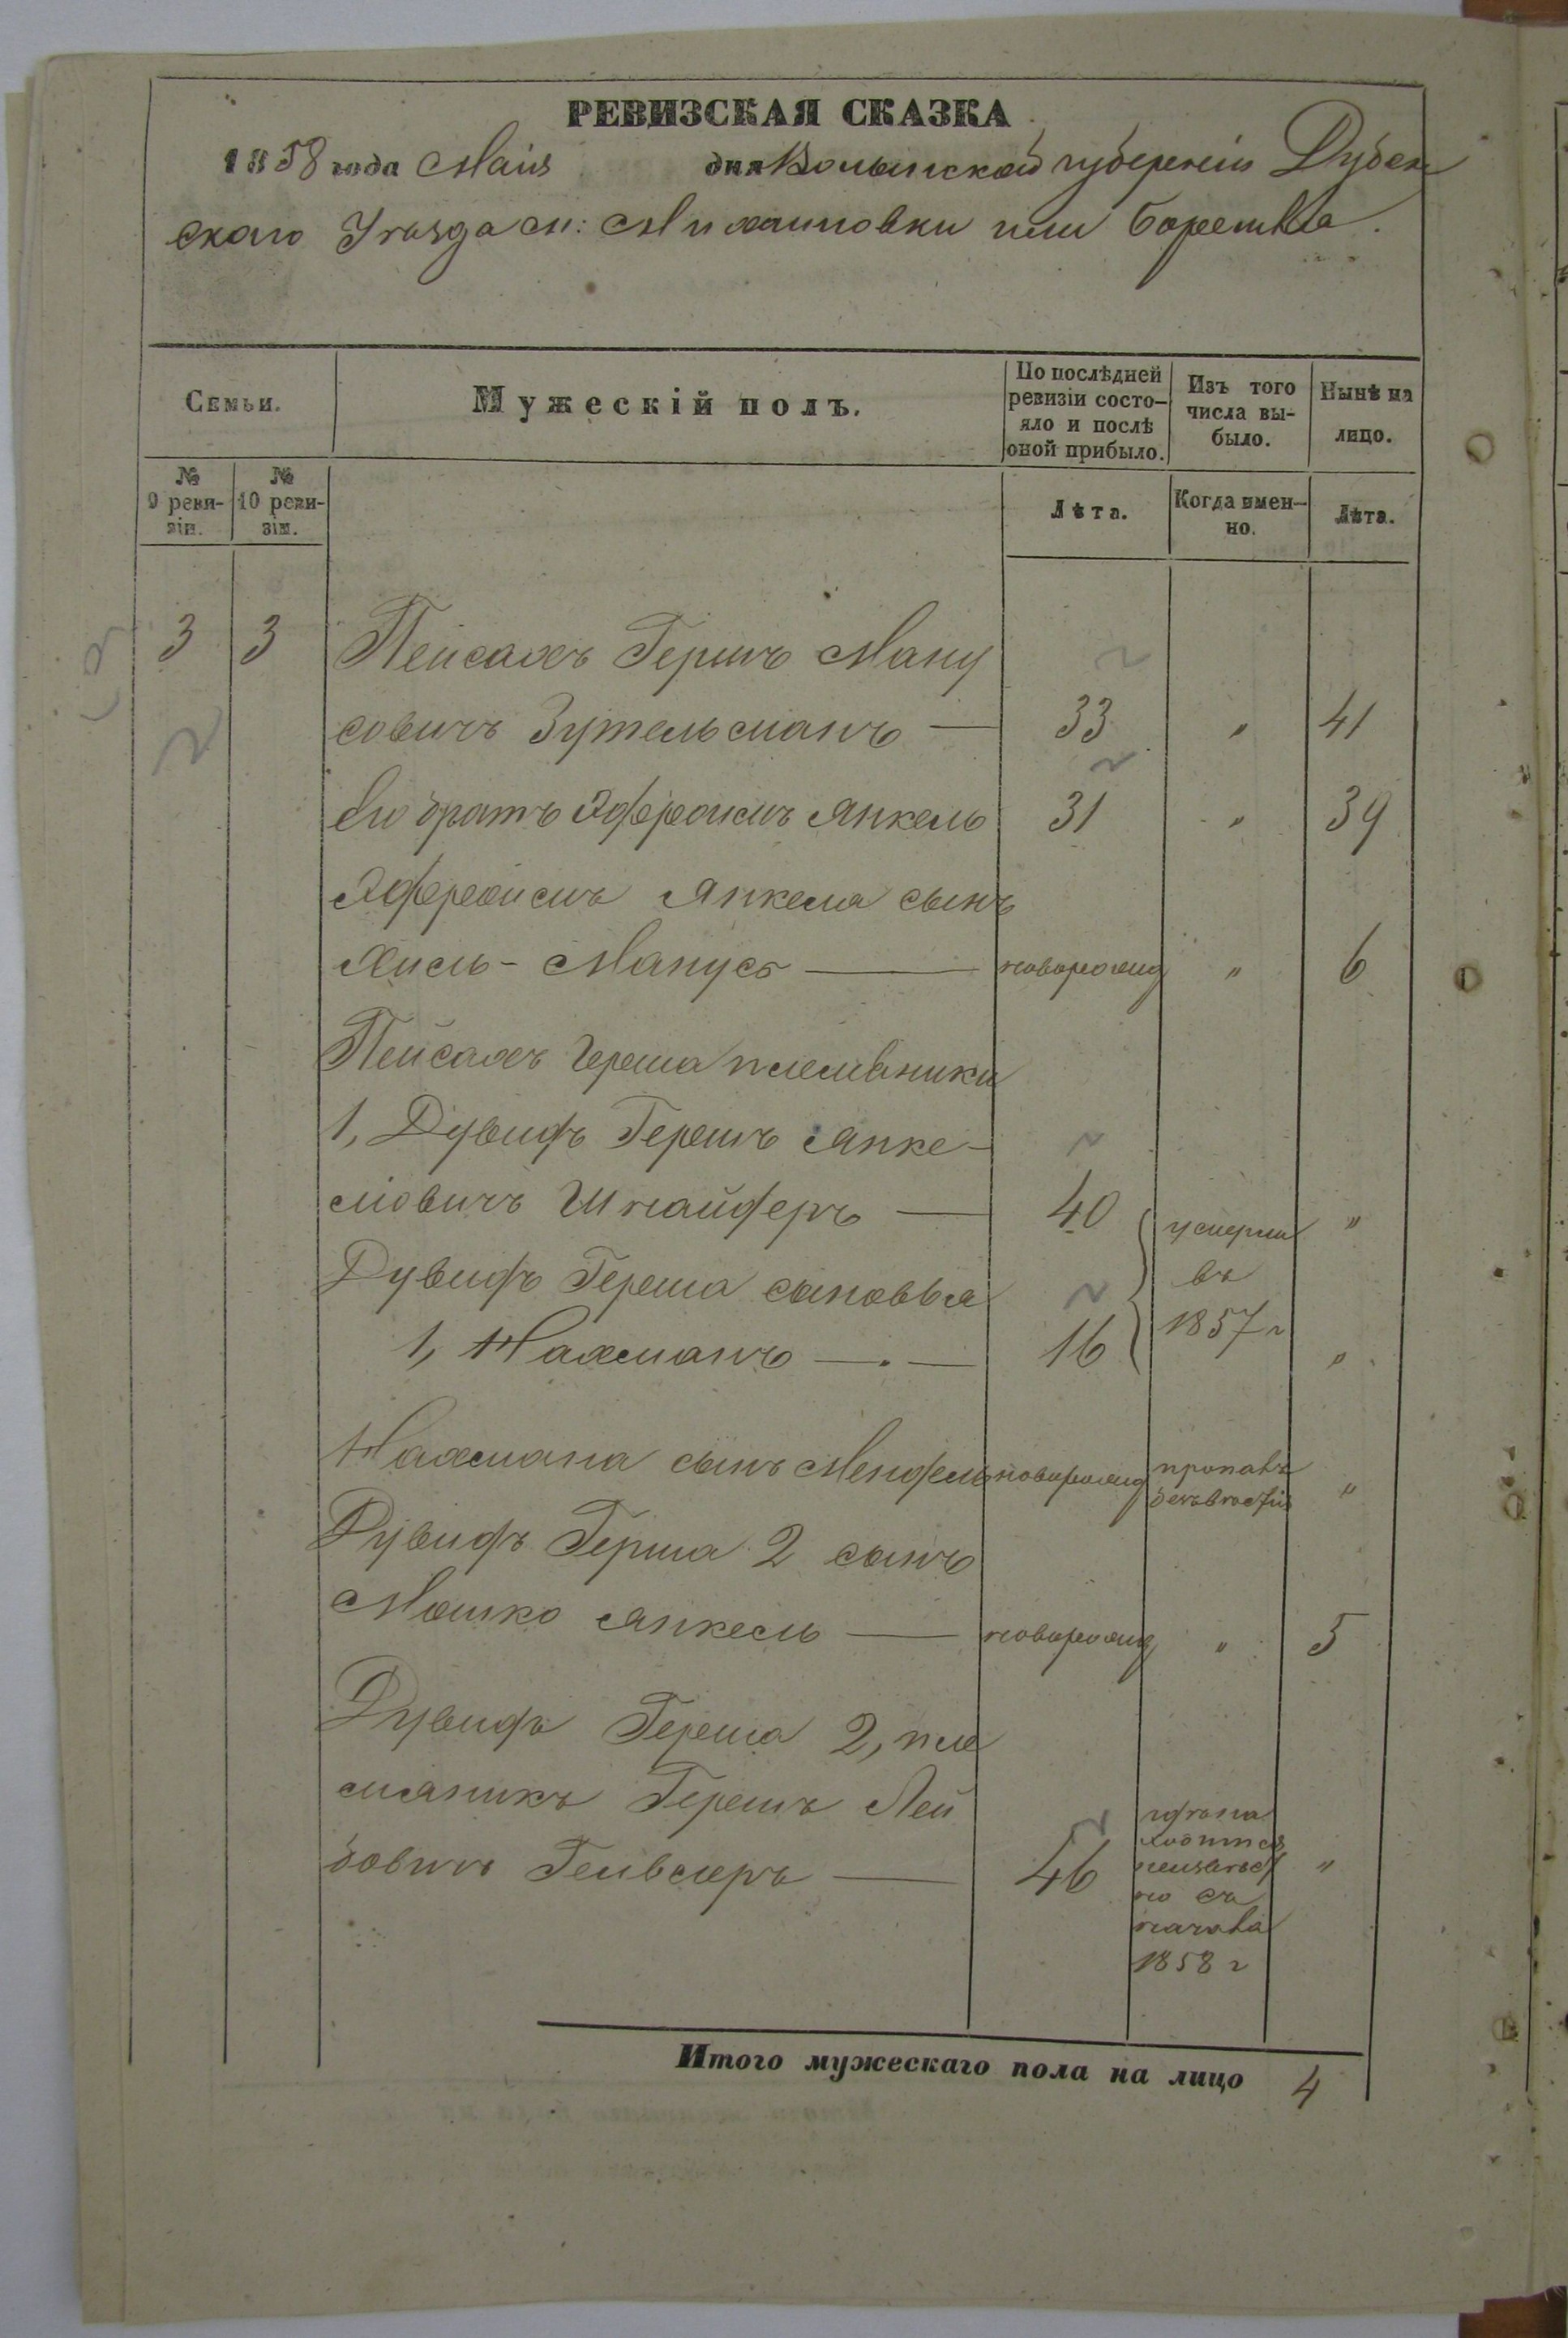 РЕВИЗСКАЯ СКАЗКА
1858 года Маія дня Волынской губерніи Дубен
скаго Уѣзда м: Михаиловки или Боремля.
Семьи.
Мужескій полъ.
По послѣдней ревизіи состо-яло и послѣ оной прибыло.
Изъ того числа вы-было.
Нынѣ на лицо.
№ 9 реви-зіи.
№ 10 реви-зіи.
Лѣта.
Когда имен-но.
Лѣта.
3 3 Пейсахъ Гершъ Ману
совичъ Зутельманъ — 33 " 41
Его братъ Эфроимъ Янкель 31 " 39
Эфроимъ Янкеля сынъ
Хиль-Манусъ — новорожд " 6
Пейсахъ Герша племѣники
1, Дувидъ Гершъ Янке-
лiовичъ Шнайдеръ — 40 умерли "
Дувидъ Герша сыновья въ
1, Нахманъ — 16 1857 г "
Нахмана сынъ Мендель новорожд пропалъ безъвѣсти "
Дувидъ Герша 2 сынъ
Мошко Янкель — новорожд " 5
Дувидъ Герша 2, пле
мяникъ Гершъ Лей
бовичъ — 46 гдѣ на
ходится
неизвѣст
но съ
начала
1858 г "
Итого мужескаго пола на лицо 4
3